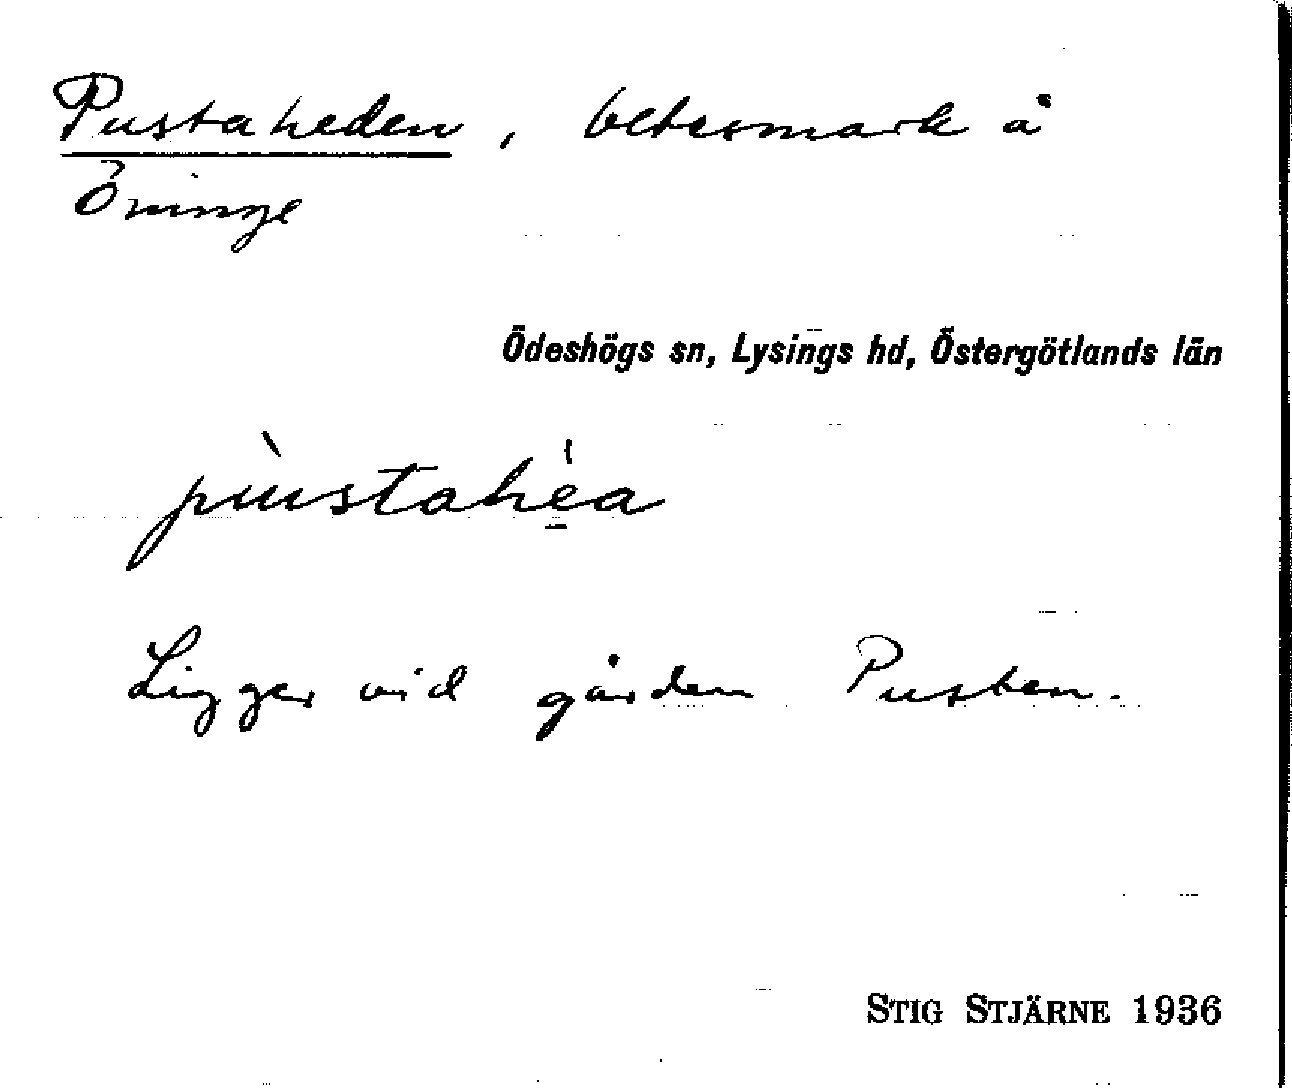 Pustaheden, betesmark å
Öninge
Ödeshögs sn, Lysings hd, Östergötlands län
pùstahe̠̍a
Ligger vid gården Pusten.
STIG STJÄRNE 1936